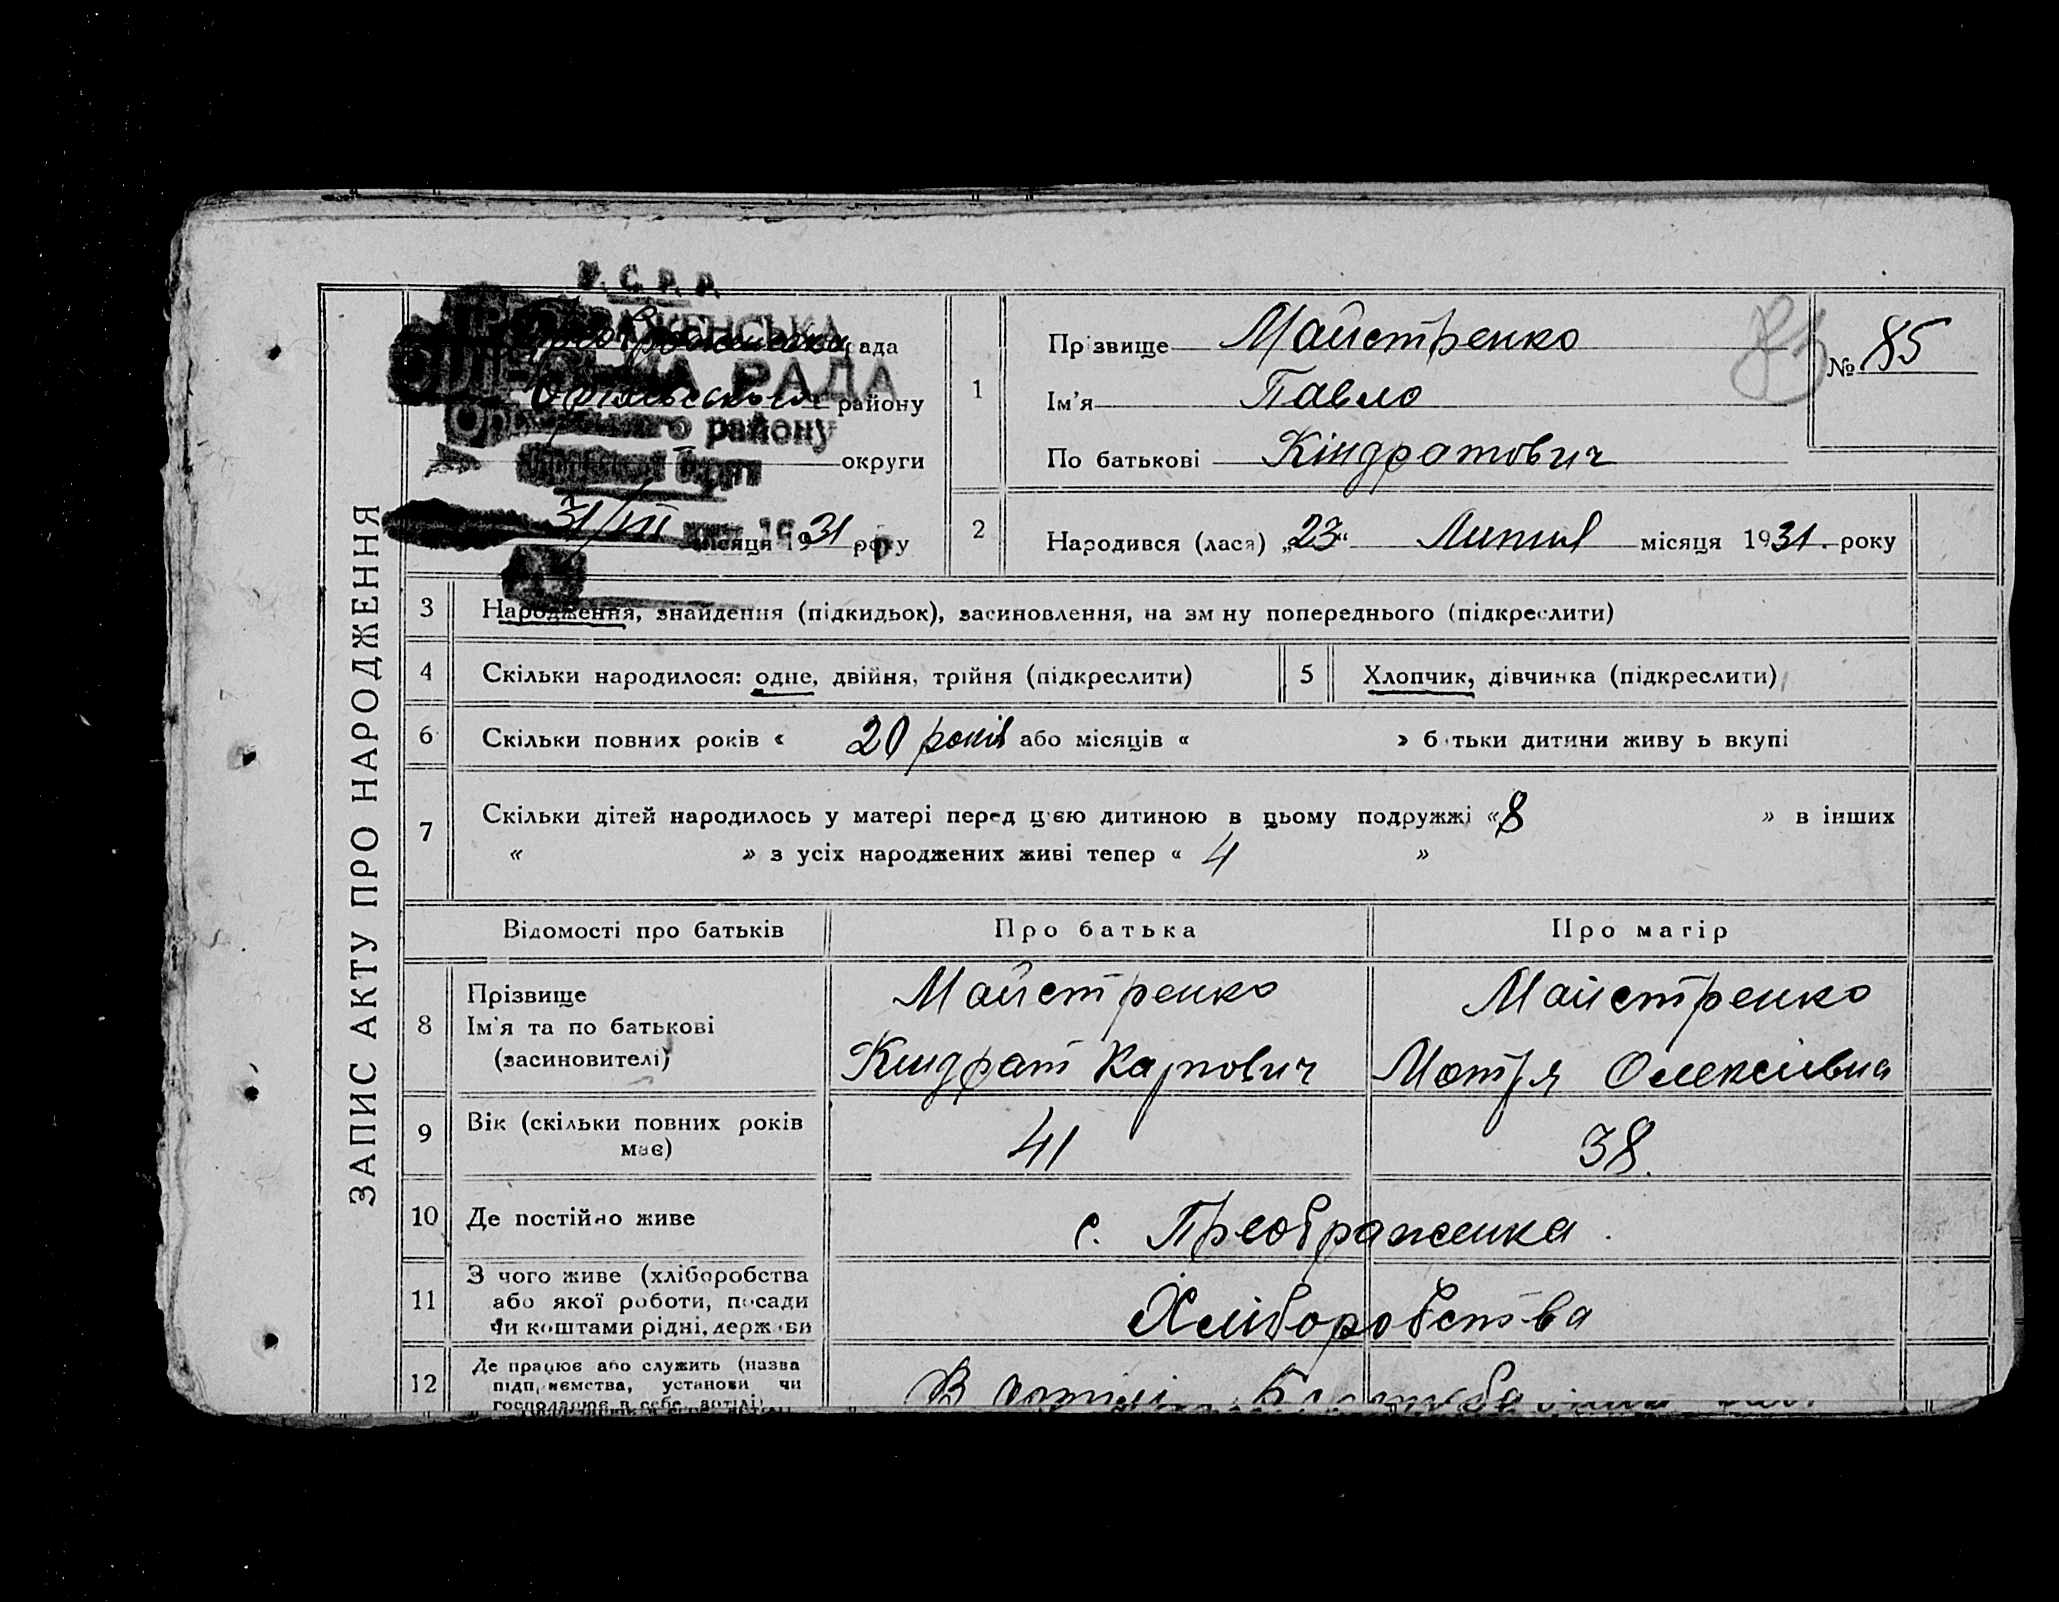 У. С. Р. Р.
Преображенська рада
РАДА
Оріхівського району
району
округи
31/VII місяця 1931 року
ЗАПИС АКТУ ПРО НАРОДЖЕННЯ
1
Прізвище Майстренко
Ім'я Павло
По батькові Кіндратович
№ 85
2 Народився (лася) „23“ Липня місяця 1931. року
3 Народження, знайдення (підкидьок), засиновлення, на зміну попереднього (підкреслити)
4 Скільки народилося: одне, двійня, трійня (підкреслити) 5 Хлопчик, дівчинка (підкреслити)
6 Скільки повних років « 20 років або місяців « » батьки дитини живуть вкупі
7 Скільки дітей народилось у матері перед цією дитиною в цьому подружжі «8 » в інших
« » з усіх народжених живі тепер « 4 »
Відомості про батьків Про батька Про матір
8 Прізвище Майстренко Майстренко
Ім'я та по батькові Кіндрат Карпович Мотря Олексіївна
(засиновителі)
9 Вік (скільки повних років має) 41 38.
10 Де постійно живе с. Преображенка.
11 З чого живе (хліборобства
або якої роботи, посади
чи коштами рідні, держави
Хліборобства
12 Де працює або служить (назва
підприємства, установи чи
господарює в себе, артілі)
В артілі